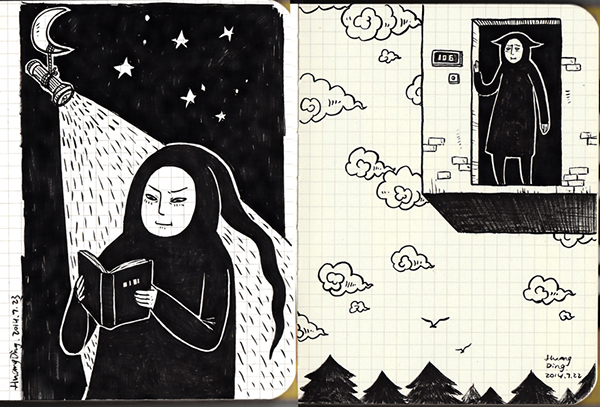 Huang Ding. 2014.7.23
106
Huang
Ding
2014.7.22